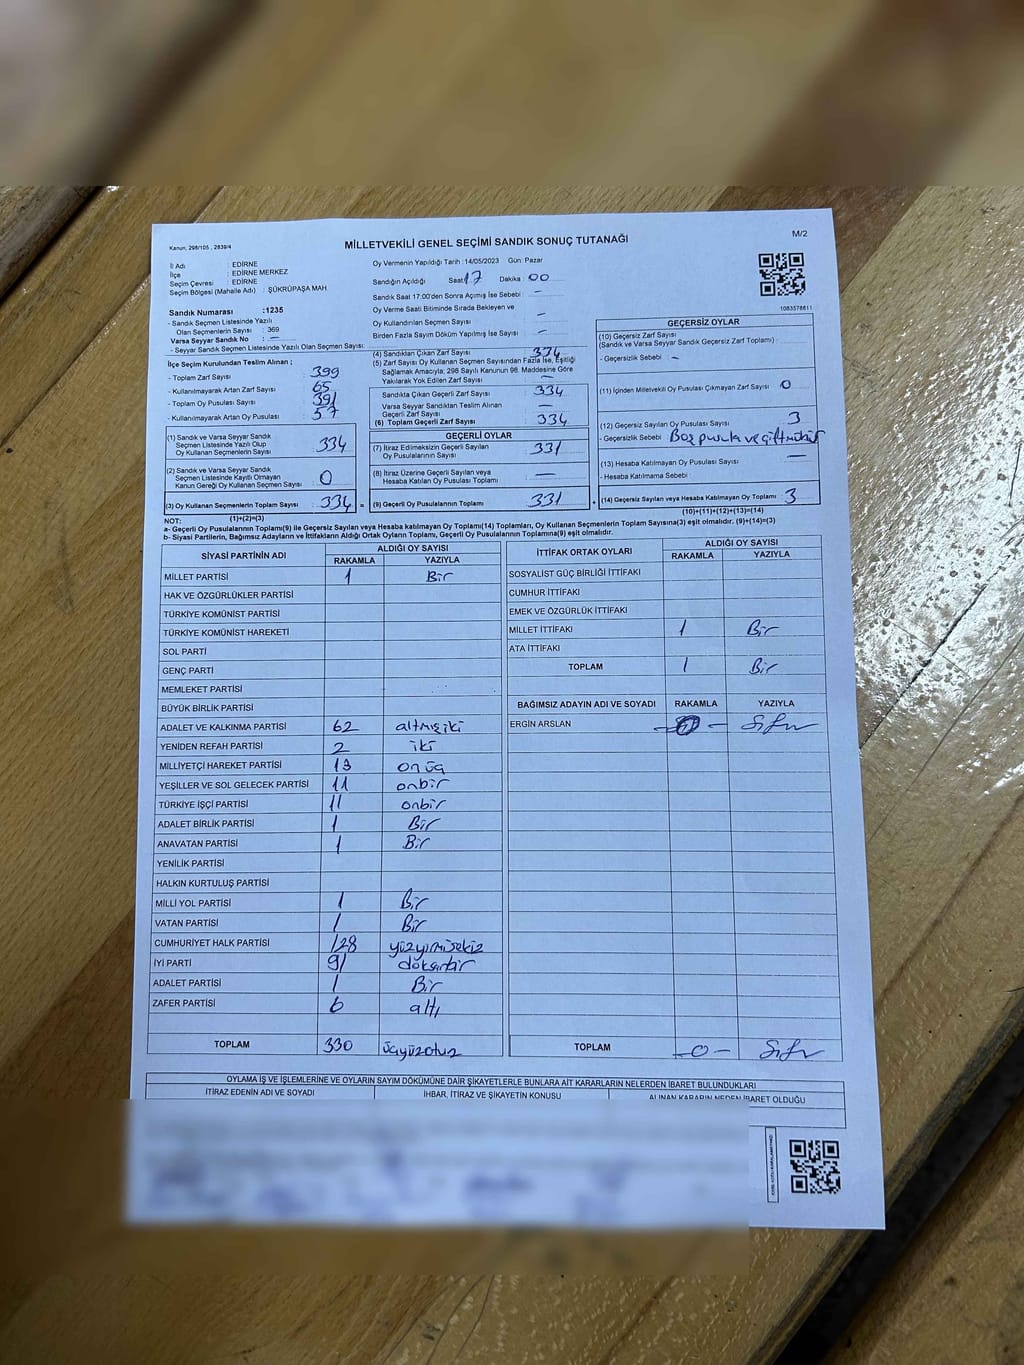 Kanun, 298/105 , 2839/4
MİLLETVEKİLİ GENEL SEÇİMİ SANDIK SONUÇ TUTANAĞI
M/2
İl Adı : EDİRNE
İlçe : EDİRNE MERKEZ
Seçim Çevresi : EDİRNE
Seçim Bölgesi (Mahalle Adı) : ŞÜKRÜPAŞA MAH
Sandık Numarası :1235
- Sandık Seçmen Listesinde Yazılı
Olan Seçmenlerin Sayısı : 369
Varsa Seyyar Sandık No : —
- Seyyar Sandık Seçmen Listesinde Yazılı Olan Seçmen Sayısı:
İlçe Seçim Kurulundan Teslim Alınan ;
- Toplam Zarf Sayısı : 399
- Kullanılmayarak Artan Zarf Sayısı : 65
- Toplam Oy Pusulası Sayısı : 391
- Kullanılmayarak Artan Oy Pusulası : 57
(1) Sandık ve Varsa Seyyar Sandık
Seçmen Listesinde Yazılı Olup
Oy Kullanan Seçmenlerin Sayısı : 334
(2) Sandık ve Varsa Seyyar Sandık
Seçmen Listesinde Kayıtlı Olmayan
Kanun Gereği Oy Kullanan Seçmen Sayısı : 0
(3) Oy Kullanan Seçmenlerin Toplam Sayısı : 334
(1)+(2)=(3)
Oy Vermenin Yapıldığı Tarih :14/05/2023 Gün: Pazar
Sandığın Açıldığı Saat: 17 Dakika : 00
Sandık Saat 17:00'den Sonra Açılmış İse Sebebi : —
Oy Verme Saati Bitiminde Sırada Bekleyen ve
Oy Kullandırılan Seçmen Sayısı : —
Birden Fazla Sayım Döküm Yapılmış İse Sayısı : —
(4) Sandıktan Çıkan Zarf Sayısı : 334
(5) Zarf Sayısı Oy Kullanan Seçmen Sayısından Fazla İse, Eşitliği
Sağlamak Amacıyla; 298 Sayılı Kanunun 98. Maddesine Göre
Yakılarak Yok Edilen Zarf Sayısı : —
Sandıkta Çıkan Geçerli Zarf Sayısı : 334
Varsa Seyyar Sandıktan Teslim Alınan
Geçerli Zarf Sayısı : —
(6) Toplam Geçerli Zarf Sayısı : 334
GEÇERLİ OYLAR
(7) İtiraz Edilmeksizin Geçerli Sayılan
Oy Pusulalarının Sayısı : 331
(8) İtiraz Üzerine Geçerli Sayılan veya
Hesaba Katılan Oy Pusulaları Toplamı : —
(9) Geçerli Oy Pusulalarının Toplamı : 331
1083578811
GEÇERSİZ OYLAR
(10) Geçersiz Zarf Sayısı
(Sandık ve Varsa Seyyar Sandık Geçersiz Zarf Toplamı) :
- Geçersizlik Sebebi : —
(11) İçinden Milletvekili Oy Pusulası Çıkmayan Zarf Sayısı : 0
(12) Geçersiz Sayılan Oy Pusulası Sayısı : 3
- Geçersizlik Sebebi : Boş pusula ve çift mühür
(13) Hesaba Katılmayan Oy Pusulası Sayısı : —
- Hesaba Katılmama Sebebi :
(14) Geçersiz Sayılan veya Hesaba Katılmayan Oy Toplamı : 3
(10)+(11)+(12)+(13)=(14)
NOT:
a- Geçerli Oy Pusulalarının Toplamı(9) ile Geçersiz Sayılan veya Hesaba katılmayan Oy Toplamı(14) Toplamları, Oy Kullanan Seçmenlerin Toplam Sayısına(3) eşit olmalıdır. (9)+(14)=(3)
b- Siyasi Partilerin, Bağımsız Adayların ve İttifakların Aldığı Ortak Oyların Toplamı, Geçerli Oy Pusulalarının Toplamına(9) eşit olmalıdır.
SİYASİ PARTİNİN ADI ALDIĞI OY SAYISI
RAKAMLA YAZIYLA
MİLLET PARTİSİ 1 Bir
HAK VE ÖZGÜRLÜKLER PARTİSİ
TÜRKİYE KOMÜNİST PARTİSİ
TÜRKİYE KOMÜNİST HAREKETİ
SOL PARTİ
GENÇ PARTİ
MEMLEKET PARTİSİ
BÜYÜK BİRLİK PARTİSİ
ADALET VE KALKINMA PARTİSİ 62 altmışiki
YENİDEN REFAH PARTİSİ 2 iki
MİLLİYETÇİ HAREKET PARTİSİ 13 onüç
YEŞİLLER VE SOL GELECEK PARTİSİ 11 onbir
TÜRKİYE İŞÇİ PARTİSİ 11 onbir
ADALET BİRLİK PARTİSİ 1 Bir
ANAVATAN PARTİSİ 1 Bir
YENİLİK PARTİSİ
HALKIN KURTULUŞ PARTİSİ
MİLLİ YOL PARTİSİ 1 Bir
VATAN PARTİSİ 1 Bir
CUMHURİYET HALK PARTİSİ 128 yüzyirmisekiz
İYİ PARTİ 91 doksanbir
ADALET PARTİSİ 1 Bir
ZAFER PARTİSİ 6 altı
TOPLAM 330 üçyüzotuz
İTTİFAK ORTAK OYLARI ALDIĞI OY SAYISI
RAKAMLA YAZIYLA
SOSYALİST GÜÇ BİRLİĞİ İTTİFAKI
CUMHUR İTTİFAKI
EMEK VE ÖZGÜRLÜK İTTİFAKI
MİLLET İTTİFAKI 1 Bir
ATA İTTİFAKI
TOPLAM 1 Bir
BAĞIMSIZ ADAYIN ADI VE SOYADI RAKAMLA YAZIYLA
ERGİN ARSLAN — 0 — Sıfır
TOPLAM — 0 — Sıfır
OYLAMA İŞ VE İŞLEMLERİNE VE OYLARIN SAYIM DÖKÜMÜNE DAİR ŞİKAYETLERLE BUNLARA AİT KARARLARIN NELERDEN İBARET BULUNDUKLARI
İTİRAZ EDENİN ADI VE SOYADI İHBAR, İTİRAZ VE ŞİKAYETİN KONUSU ALINAN KARARIN NEDEN İBARET OLDUĞU